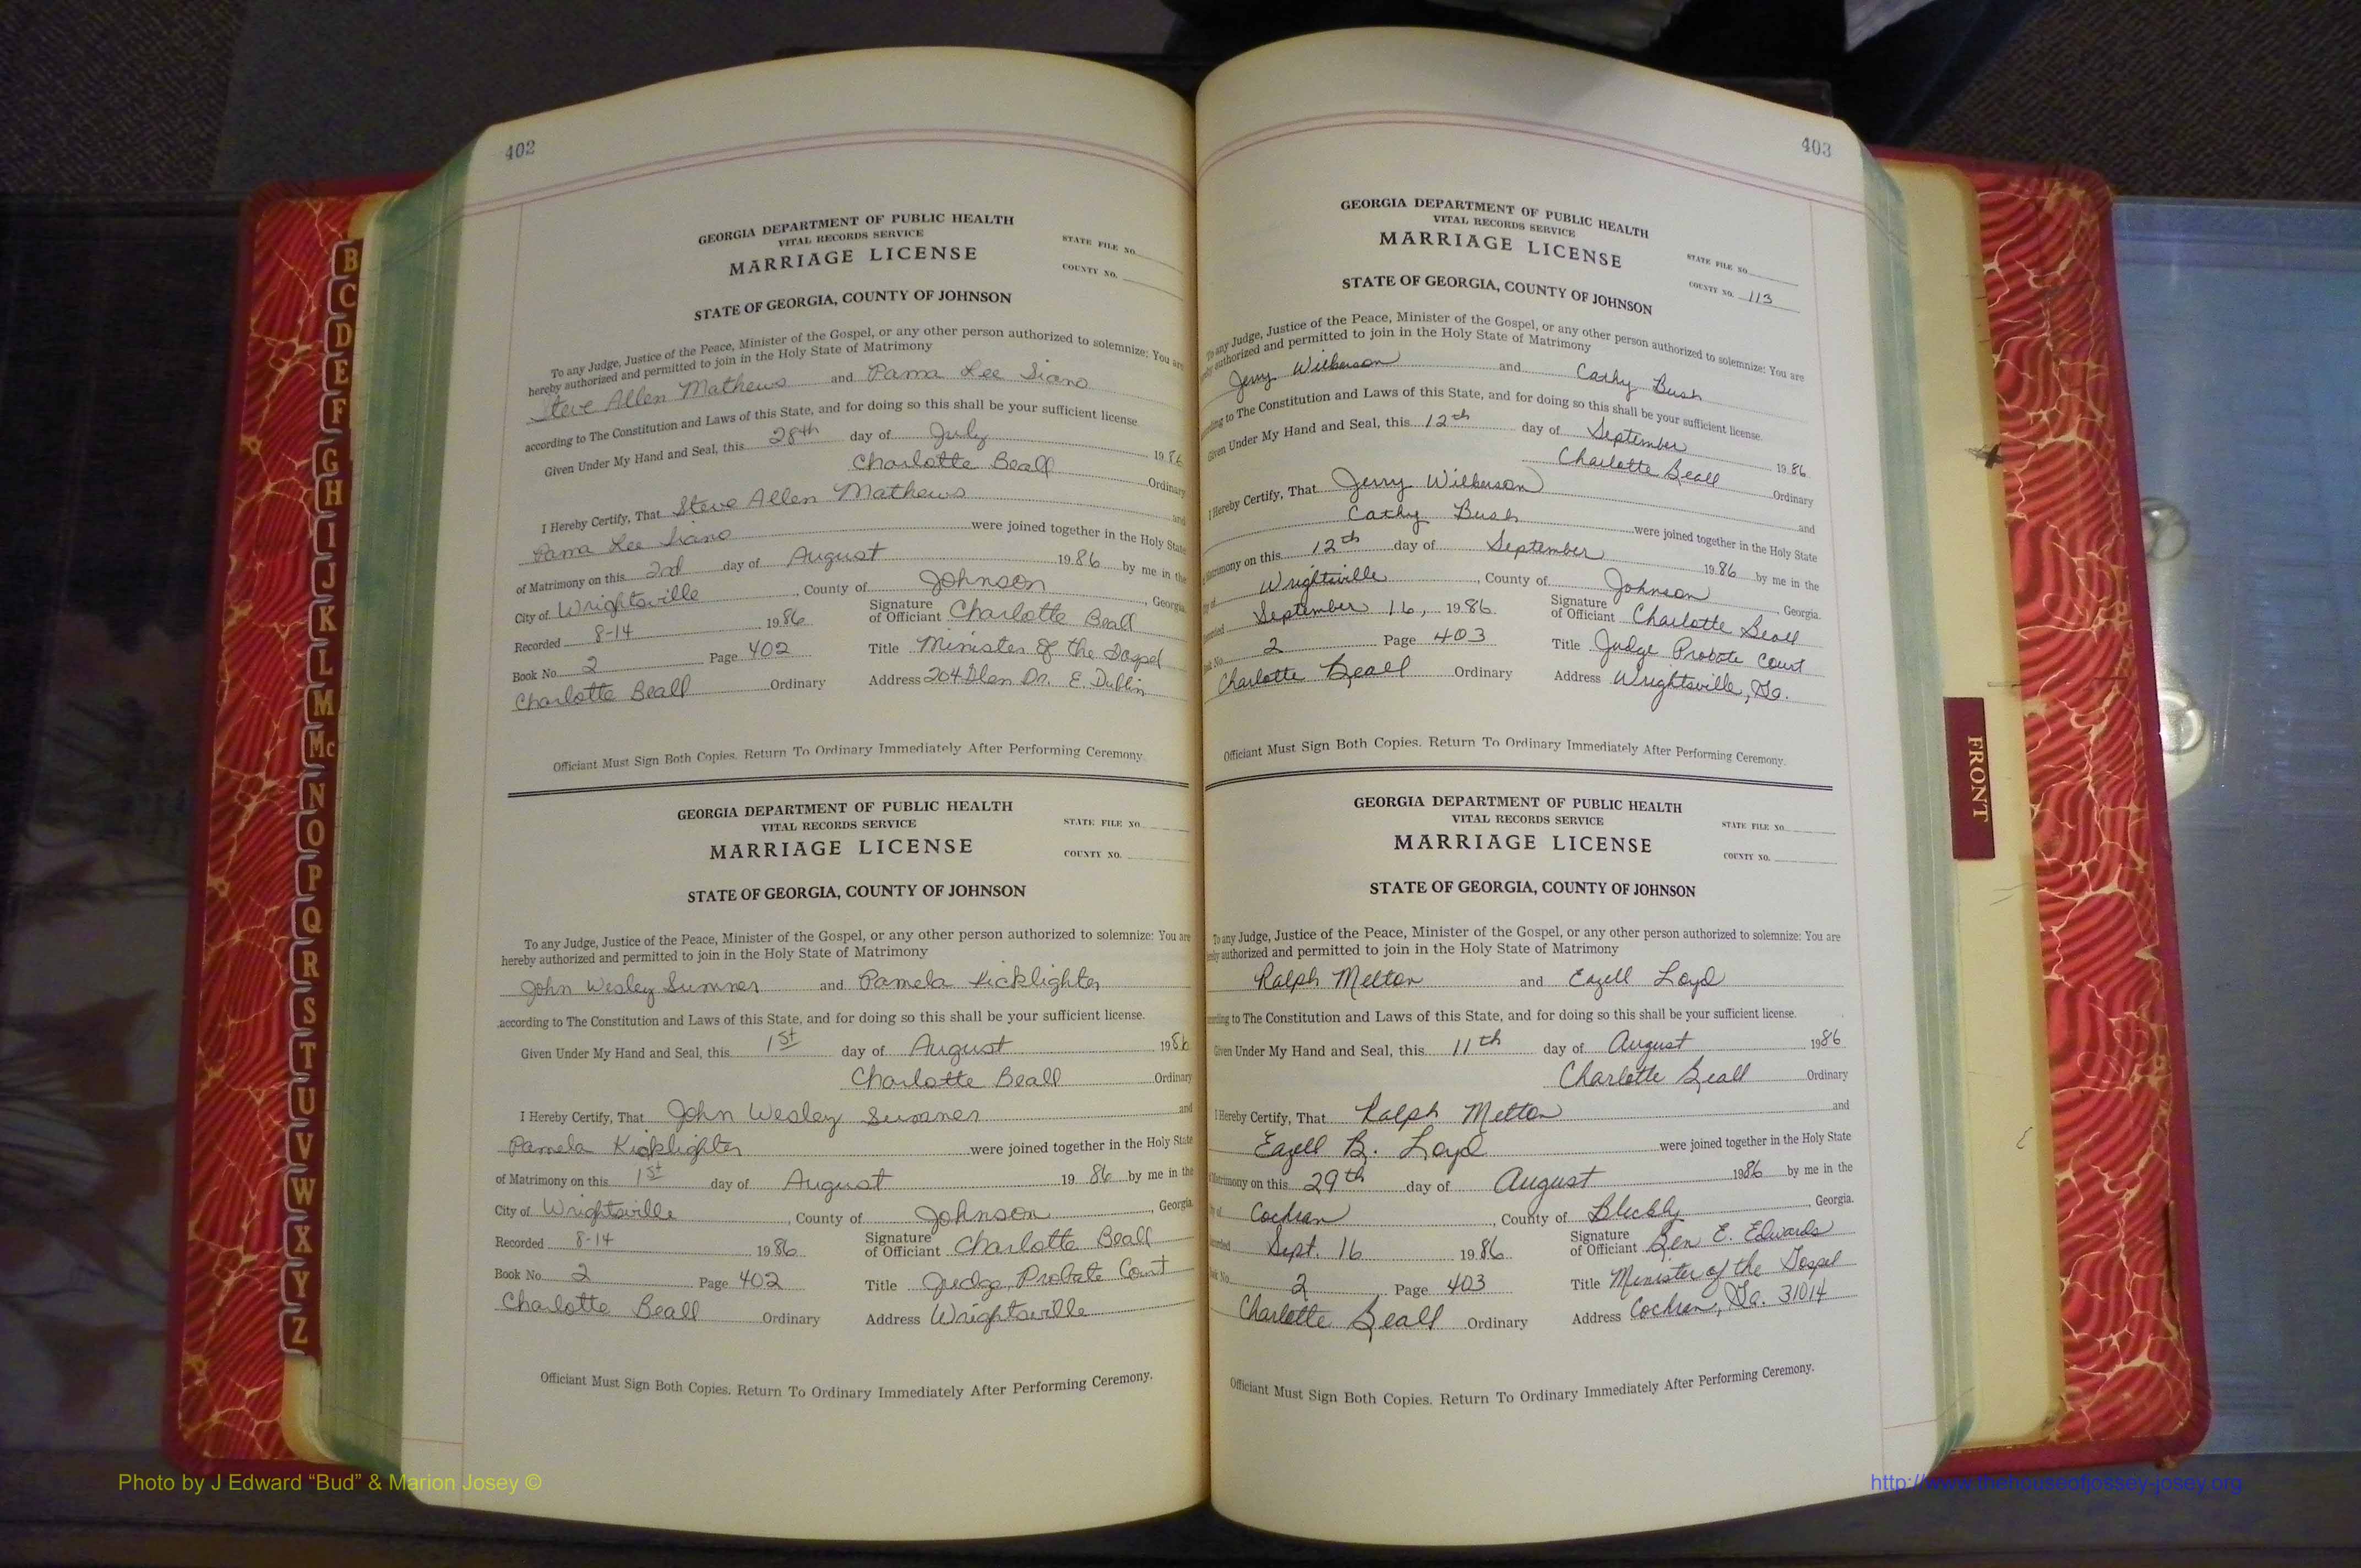 402
GEORGIA DEPARTMENT OF PUBLIC HEALTH
VITAL RECORDS SERVICE
MARRIAGE LICENSE
STATE FILE NO.
COUNTY NO.
STATE OF GEORGIA, COUNTY OF JOHNSON
To any Judge, Justice of the Peace, Minister of the Gospel, or any other person authorized to solemnize: You are
hereby authorized and permitted to join in the Holy State of Matrimony
Steve Allen Mathews and Pama Lee Siano
according to The Constitution and Laws of this State, and for doing so this shall be your sufficient license
Given Under My Hand and Seal, this 28th day of July 1986
Charlotte Beall Ordinary
I Hereby Certify, That Steve Allen Mathews and
Pama Lee Siano were joined together in the Holy State
of Matrimony on this 2nd day of August 1986 by me in the
City of Wrightsville, County of Johnson, Georgia
Recorded 8-14 1986 Signature of Officiant Charlotte Beall
Book No. 2 Page 402 Title Minister of the Gospel
Charlotte Beall Ordinary Address 204 Glen Dr. E. Dublin
Officiant Must Sign Both Copies. Return To Ordinary Immediately After Performing Ceremony.
GEORGIA DEPARTMENT OF PUBLIC HEALTH
VITAL RECORDS SERVICE
MARRIAGE LICENSE
STATE FILE NO.
COUNTY NO.
STATE OF GEORGIA, COUNTY OF JOHNSON
To any Judge, Justice of the Peace, Minister of the Gospel, or any other person authorized to solemnize: You are
hereby authorized and permitted to join in the Holy State of Matrimony
John Wesley Sumner and Pamela Kicklighter
according to The Constitution and Laws of this State, and for doing so this shall be your sufficient license.
Given Under My Hand and Seal, this 1st day of August 1986
Charlotte Beall Ordinary
I Hereby Certify, That John Wesley Sumner and
Pamela Kicklighter were joined together in the Holy State
of Matrimony on this 1st day of August 1986 by me in the
City of Wrightsville, County of Johnson, Georgia
Recorded 8-14 1986 Signature of Officiant Charlotte Beall
Book No. 2 Page 402 Title Judge, Probate Court
Charlotte Beall Ordinary Address Wrightsville
Officiant Must Sign Both Copies. Return To Ordinary Immediately After Performing Ceremony.
403
GEORGIA DEPARTMENT OF PUBLIC HEALTH
VITAL RECORDS SERVICE
MARRIAGE LICENSE
STATE FILE NO.
COUNTY NO. 113
STATE OF GEORGIA, COUNTY OF JOHNSON
To any Judge, Justice of the Peace, Minister of the Gospel, or any other person authorized to solemnize: You are
hereby authorized and permitted to join in the Holy State of Matrimony
Jerry Wilkerson and Cathy Bush
according to The Constitution and Laws of this State, and for doing so this shall be your sufficient license.
Given Under My Hand and Seal, this 12th day of September 1986
Charlotte Beall Ordinary
I Hereby Certify, That Jerry Wilkerson and
Cathy Bush were joined together in the Holy State
Matrimony on this 12th day of September 1986 by me in the
Wrightsville, County of Johnson, Georgia
September 16, 1986 Signature of Officiant Charlotte Beall
2 Page 403 Title Judge Probate Court
Charlotte Beall Ordinary Address Wrightsville, Ga.
Officiant Must Sign Both Copies. Return To Ordinary Immediately After Performing Ceremony.
GEORGIA DEPARTMENT OF PUBLIC HEALTH
VITAL RECORDS SERVICE
MARRIAGE LICENSE
STATE FILE NO.
COUNTY NO.
STATE OF GEORGIA, COUNTY OF JOHNSON
To any Judge, Justice of the Peace, Minister of the Gospel, or any other person authorized to solemnize: You are
hereby authorized and permitted to join in the Holy State of Matrimony
Ralph Melton and Ezell Loyd
according to The Constitution and Laws of this State, and for doing so this shall be your sufficient license.
Given Under My Hand and Seal, this 11th day of August 1986
Charlotte Beall Ordinary
I Hereby Certify, That Ralph Melton and
Ezell B. Loyd were joined together in the Holy State
Matrimony on this 29th day of August 1986 by me in the
Cochran, County of Bleckly, Georgia.
Sept. 16 1986 Signature of Officiant Ben E. Edwards
2 Page 403 Title Minister of the Gospel
Charlotte Beall Ordinary Address Cochran, Ga. 31014
Officiant Must Sign Both Copies. Return To Ordinary Immediately After Performing Ceremony.
B
C
D
E
F
G
H
I
J
K
L
M
Mc
N
O
P
Q
R
S
T
U
V
W
X
Y
Z
FRONT
Photo by J Edward “Bud” & Marion Josey ©
http://www.thehouseofjossey-josey.org